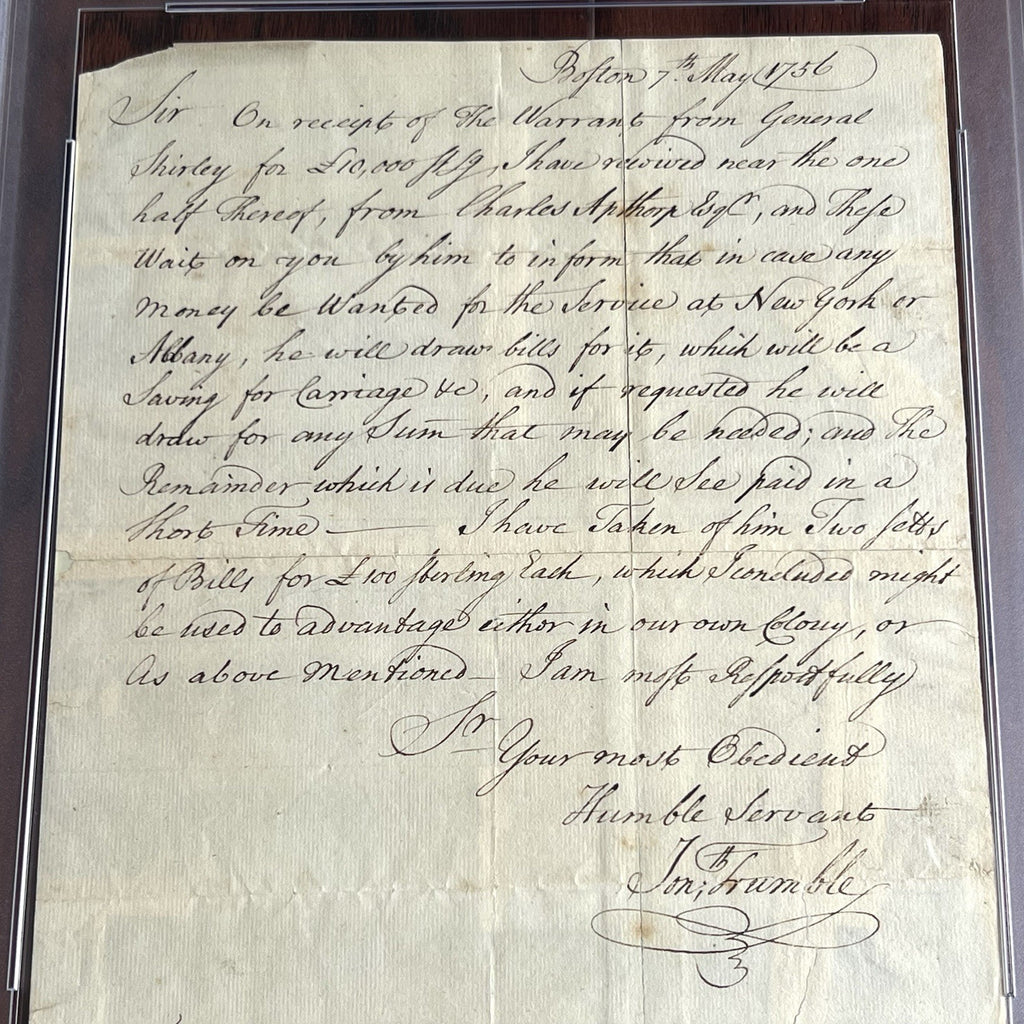 Boston 7.th May 1756
Sir On receipt of The Warrant from General
Shirley for £10,000 Stg, I have received near the one
half Thereof, from Charles Apthorp Esqr, and These
Wait on you by him to inform that in case any
money be Wanted for the Service at New York or
Albany, he will draw bills for it, which will be a
Saving for Carriage &c, and if requested he will
draw for any Sum that may be needed; and The
Remainder which is due he will See paid in a
Short Time — I have Taken of him Two setts
of Bills for £100 Sterling Each, which I concluded might
be used to advantage either in our own Colony, or
As above Mentioned — I am most Respectfully
Sr
Your most Obedient
Humble Servant
Jon;th Trumble